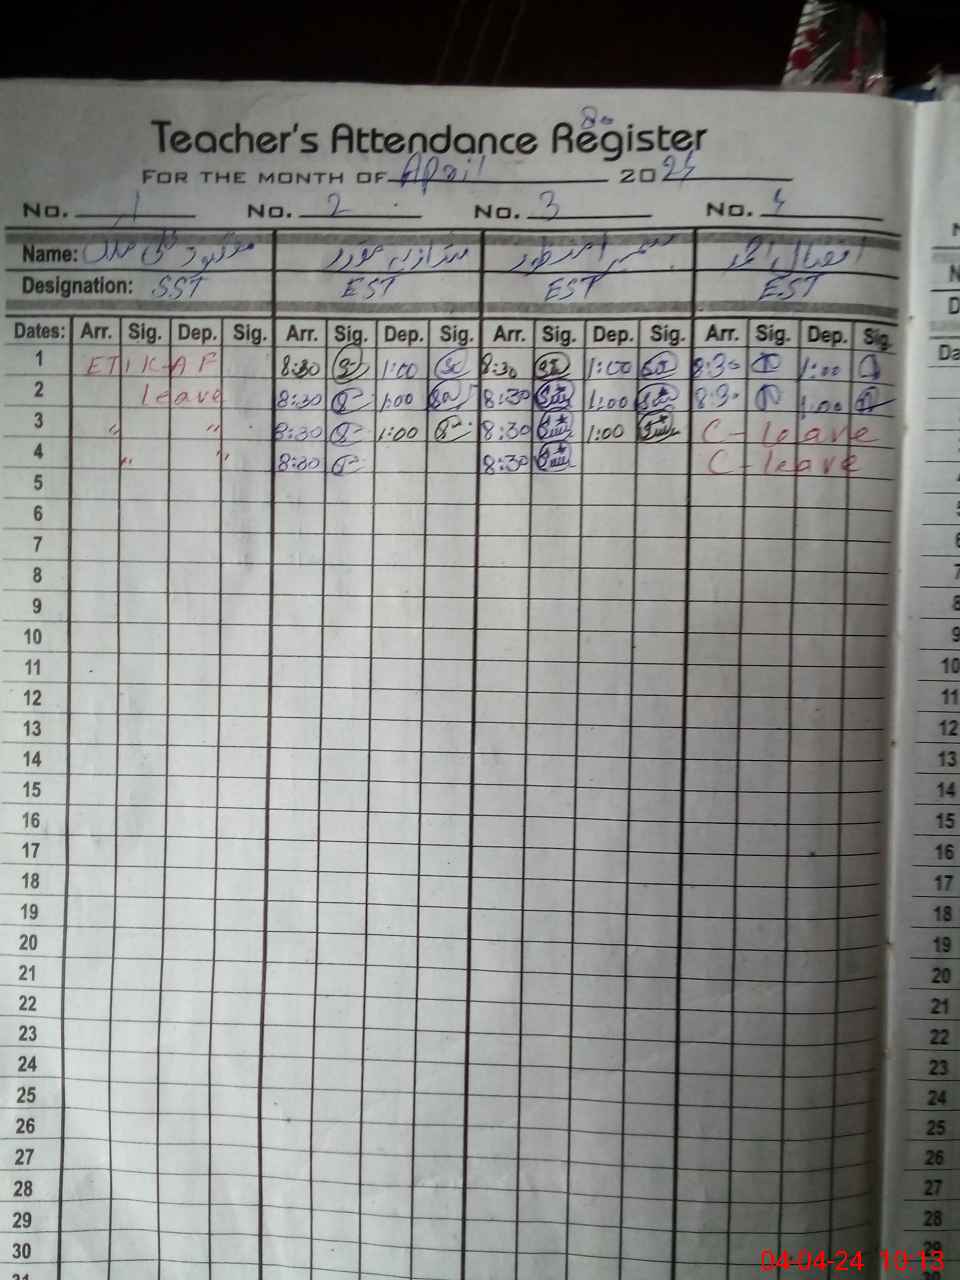 Teacher's Attendance Register
FOR THE MONTH OF April 2024
No. 1 No. 2 No. 3 No. 4
Name:
Designation: SST EST EST EST
Dates: Arr. Sig. Dep. Sig. Arr. Sig. Dep. Sig. Arr. Sig. Dep. Sig. Arr. Sig. Dep. Sig.
1 ETIKAF 8:30 1:00 8:30 1:00 8:30 1:00
2 leave 8:30 1:00 8:30 1:00 8:30 1:00
3 " " 8:30 1:00 8:30 1:00 C-leave
4 " " 8:30 8:30 C-leave
5
6
7
8
9
10
11
12
13
14
15
16
17
18
19
20
21
22
23
24
25
26
27
28
29
30
04-04-24 10:13